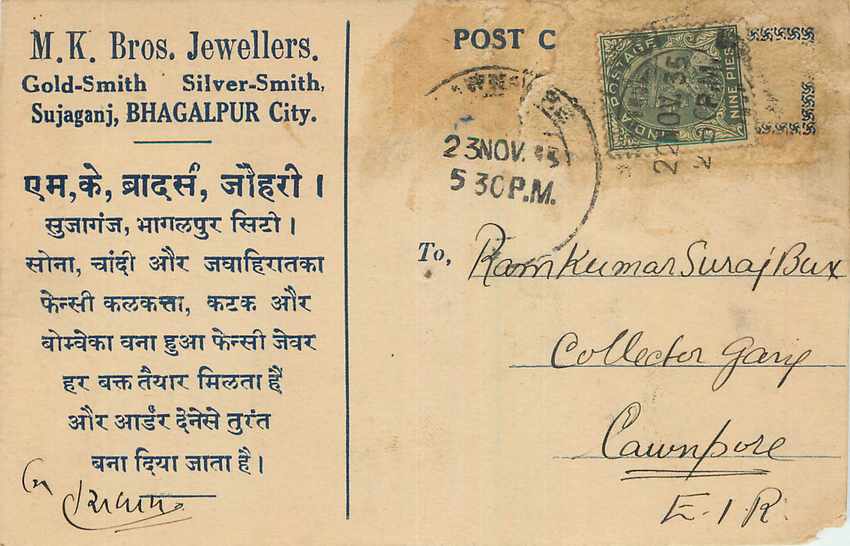 M. K. Bros. Jewellers.
Gold-Smith Silver-Smith,
Sujaganj, BHAGALPUR City.
एम, के, ब्रादर्स, जौहरी ।
सुजागंज, भागलपुर सिटी ।
सोना, चांदी और जवाहिरातका
फेन्सी कलकत्ता, कटक और
बोम्बेका बना हुआ फेन्सी जेवर
हर बक्त तैयार मिलता है
और आर्डर देनेसे तुरंत
बना दिया जाता है ।
POST C
INDIA POSTAGE
NINE PIES
22 NOV. 35
P.M.
23 NOV.
5 30 P.M.
To, Ram Kumar Suraj Bux
Collector Ganj
Cawnpore
E.I.R.